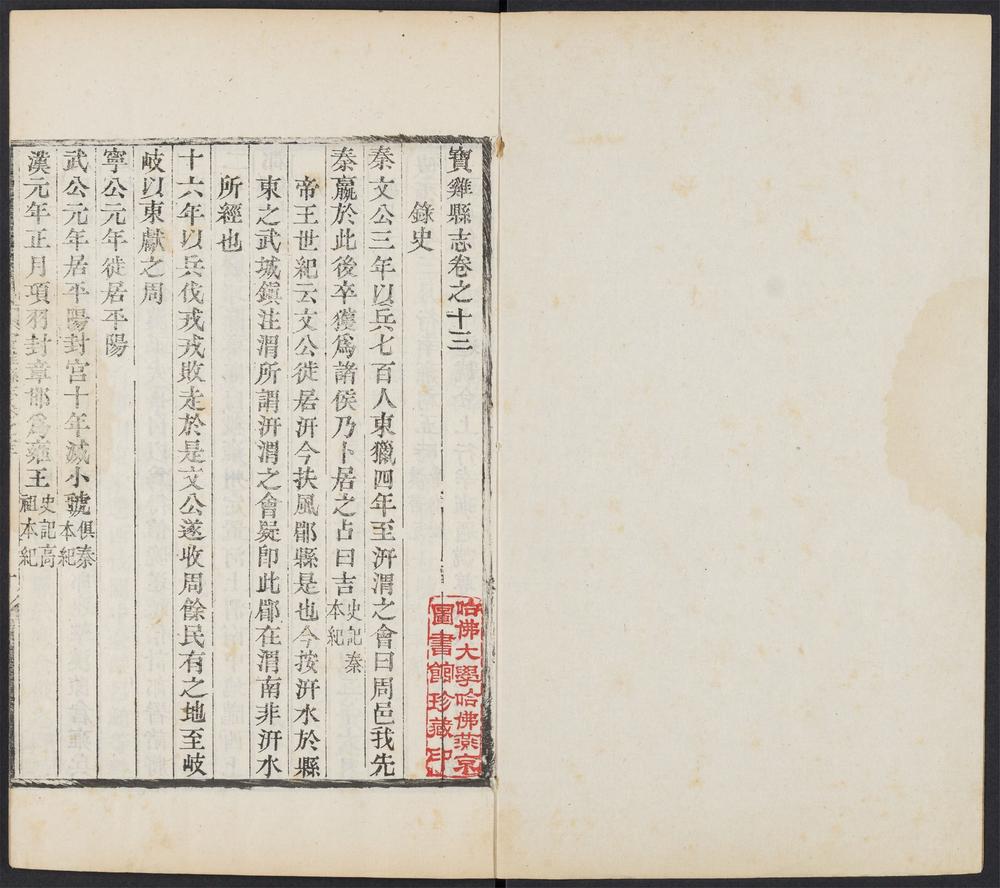 寶雞縣志卷之十三
錄史
秦文公三年以兵七百人東獵四年至汧渭之會曰周邑我先
秦嬴於此後卒獲爲諸侯乃卜居之占曰吉史記秦本紀
帝王世紀云文公徙居汧今扶風郿縣是也今按汧水於縣
東之武城鎭注渭所謂汧渭之會疑卽此郿在渭南非汧水
所經也
十六年以兵伐戎戎敗走於是文公遂收周餘民有之地至岐
岐以東獻之周
寧公元年徙居平陽
武公元年居平陽封宮十年滅小虢俱秦本紀
漢元年正月項羽封章邯爲雍王史記高祖本紀
哈佛大學哈佛燕京
圖書館珍藏印